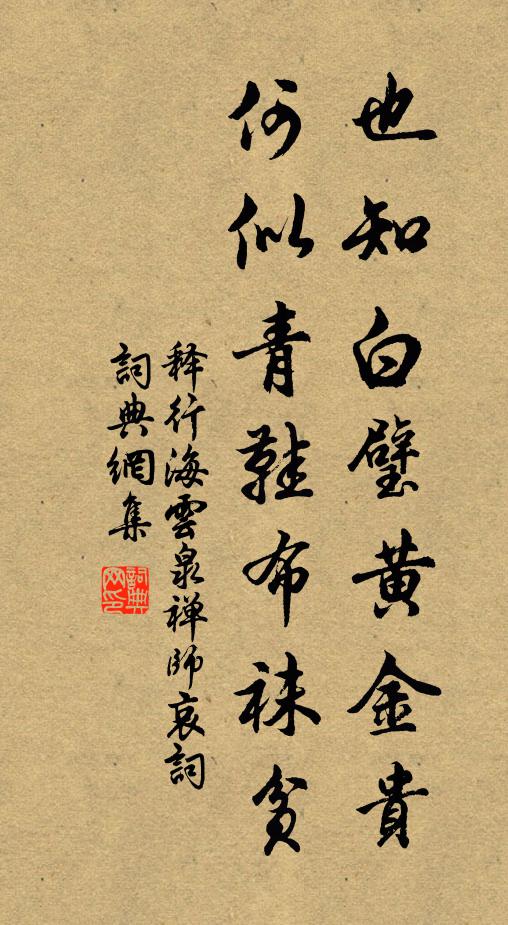 也知白璧黃金貴
何似青鞋布袜貧
释行海雲泉禅師哀詞
詞典網集
詞典网印